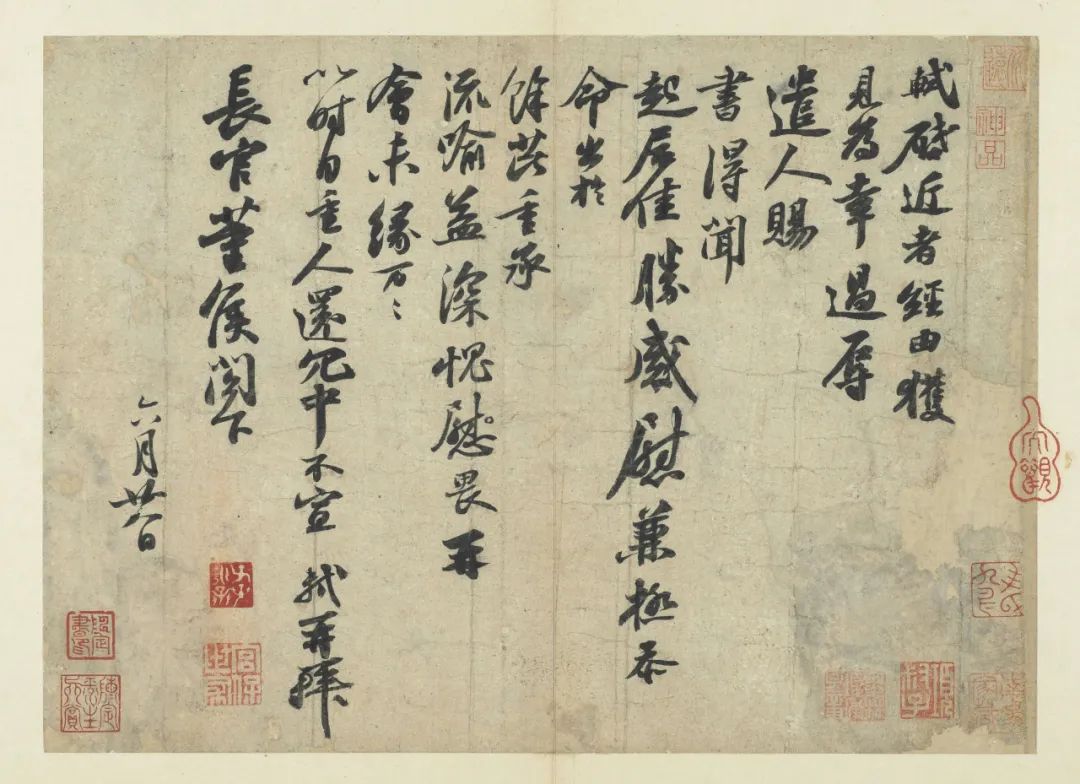 軾啟近者經由獲
見為幸過辱
遣人賜
書得聞
起居佳勝感慰兼極忝
命出於
餘芘重承
流喻益深愧慰畏再
會未緣萬〻
以時自重人還冗中不宣 軾再拜
長官董侯閣下
六月廿八日
神品